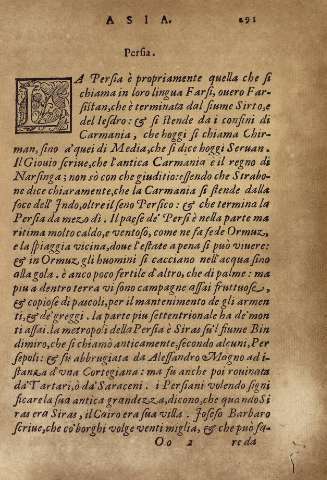 ASIA. 291
Persia.
LA Persia è propriamente quella che si
chiama in loro lingua Farsi, overo Far-
sistan, che è terminata dal fiume Sirto, e
del Iesdro: & si stende da i confini di
Carmania, che hoggi si chiama Chir-
man, sino à quei di Media, che si dice hoggi Seruan.
Il Giouio scriue, che l'antica Carmania è il regno di
Narsinga; non sò con che giuditio: essendo che Strabo-
ne dice chiaramente, che la Carmania si stende dalla
foce dell'Indo, oltre il seno Persico: & che termina la
Persia da mezo di. Il paese de' Persi è nella parte ma
ritima molto caldo, e ventoso, come ne fa fede Ormuz,
e la spiaggia vicina, doue l'estate a pena si può viuere:
& in Ormuz gli huomini si cacciano nell'acqua sino
alla gola. è anco poco fertile d'altro, che di palme: ma
piu a dentro terra vi sono campagne assai fruttuose,
& copiose di pascoli, per il mantenimento de gli armen
ti, & de' greggi. la parte piu settentrionale ha de' mon
ti assai. la metropoli della Persia è Siras su'l fiume Bin
dimiro, che si chiamò anticamente, secondo alcuni, Per
sepoli: & fu abbrugiata da Alessandro Magno ad in-
stanza d'una Cortegiana: ma fu anche poi rouinata
da' Tartari, ò da' Saraceni. i Persiani volendo signi
ficare la sua antica grandezza, dicono, che quando Si
ras era Siras, il Cairo era sua villa. Iosefo Barbaro
scriue, che co' borghi volge venti miglia, & che può fa-
Oo 2 re da